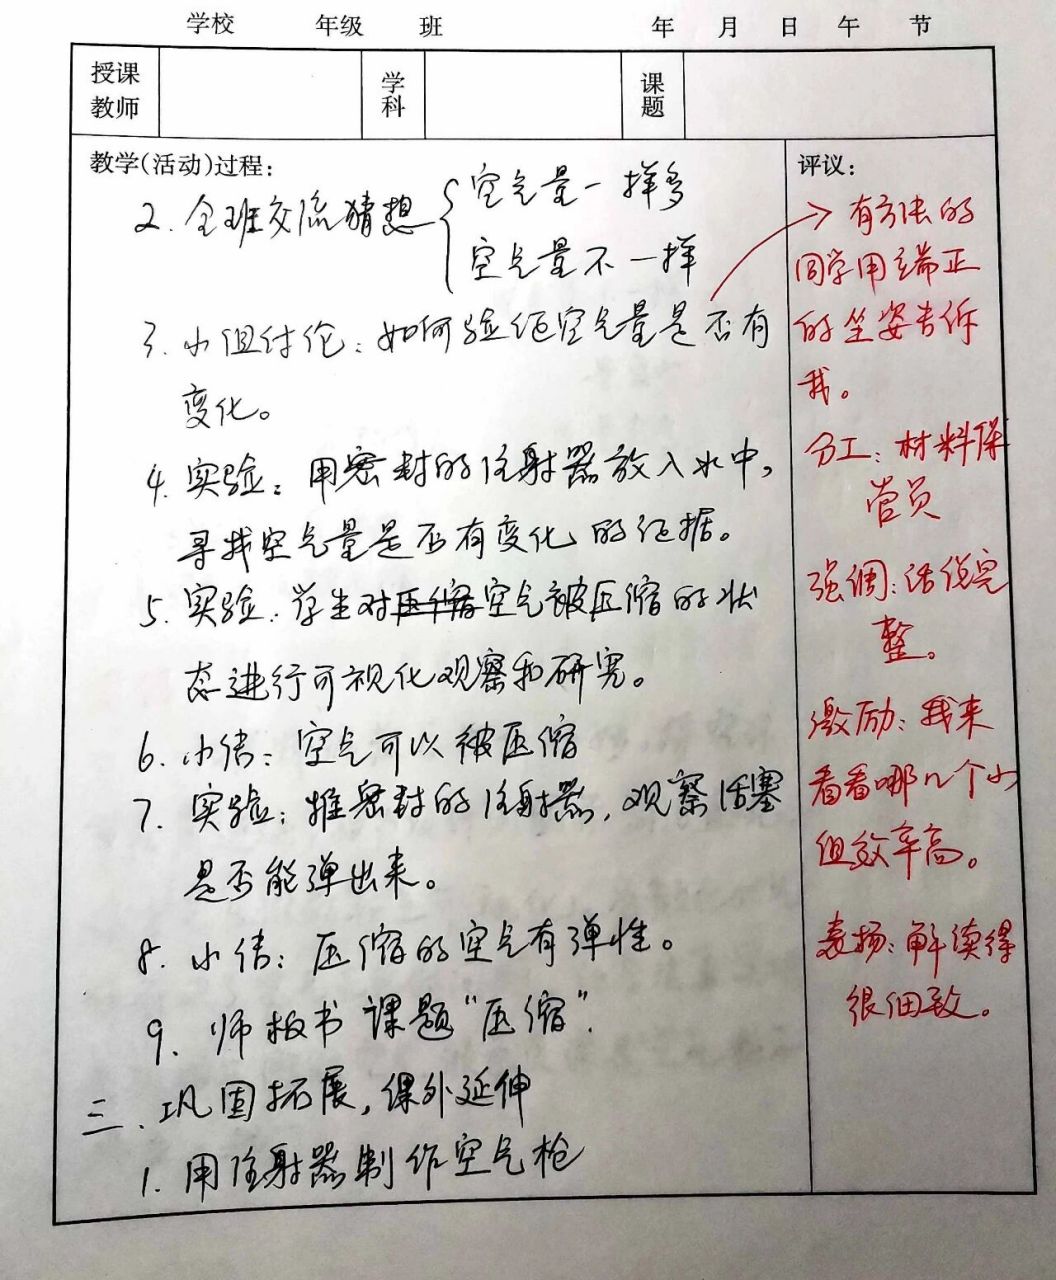 学校 年级 班 年 月 日 午 节
授课教师 学科 课题
教学(活动)过程:
2. 全班交流猜想 { 空气量一样多
空气量不一样
3. 小组讨论: 如何验证空气量是否有
变化。
4. 实验: 用密封的注射器放入水中,
寻找空气量是否有变化的证据。
5. 实验: 学生对压缩空气被压缩的状
态进行可视化观察和研究。
6. 小结: 空气可以被压缩
7. 实验: 推密封的注射器, 观察活塞
是否能弹出来。
8. 小结: 压缩的空气有弹性。
9. 师板书课题“压缩”.
三. 巩固拓展, 课外延伸
1. 用注射器制作空气枪
评议:
→ 有方法的
同学用端正
的坐姿告诉
我。
分工: 材料保
管员
强调: 话说完
整。
激励: 我来
看看哪几个小
组效率高。
表扬: 解读得
很细致。